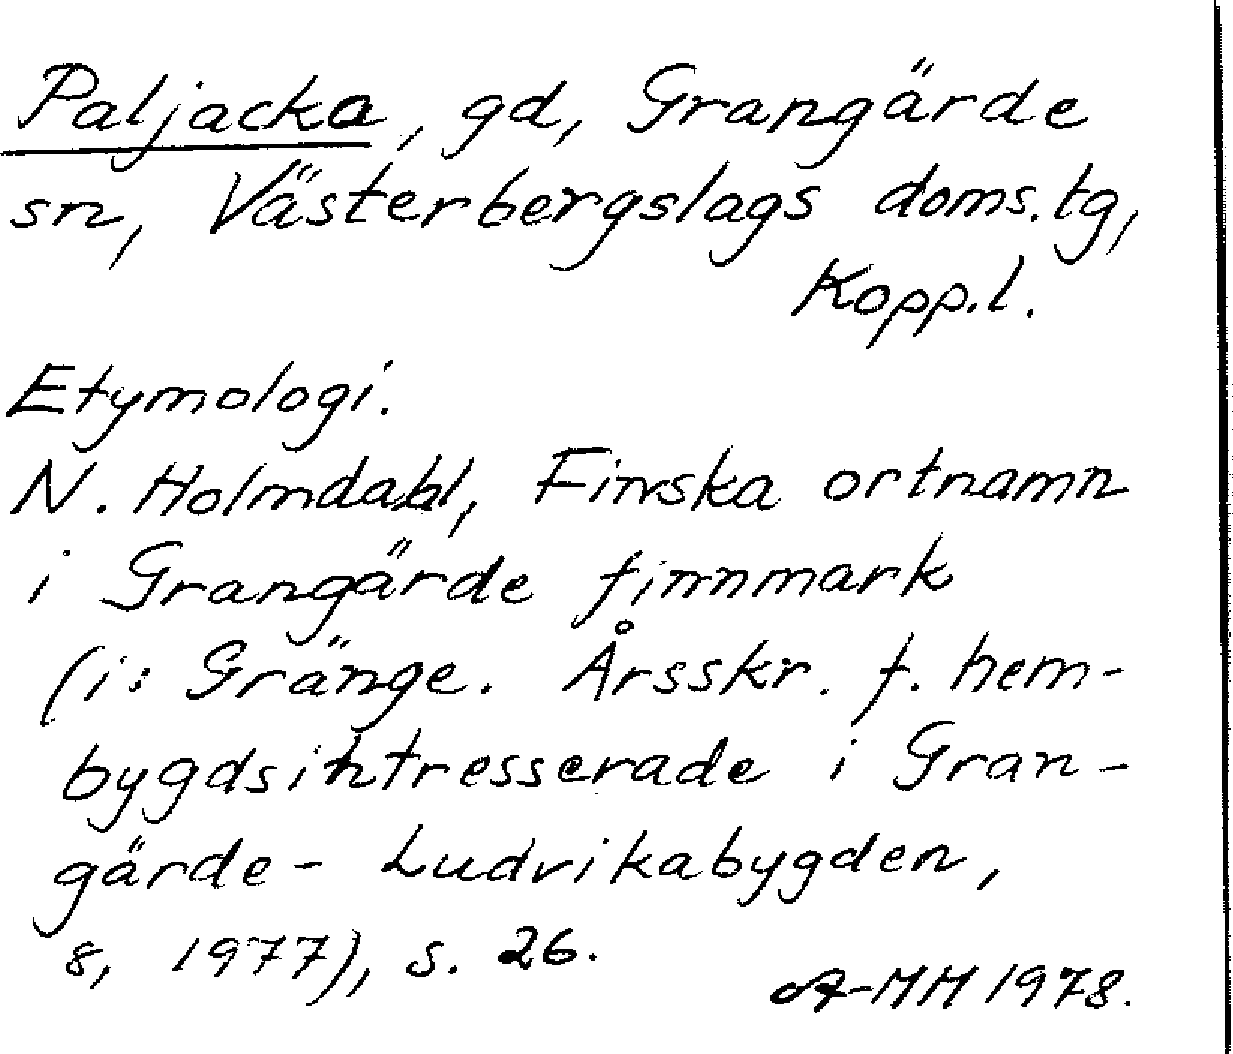 Paljacka, gd, Grangärde
sn, Västerbergslags doms.tg,
Kopp.l.
Etymologi.
N. Holmdahl, Finska ortnamn
i Grangärde finnmark
(i: Gränge. Årsskr. f. hem-
bygdsintresserade i Gran-
gärde- Ludvikabygden,
8, 1977), s. 26.
A-MH 1978.